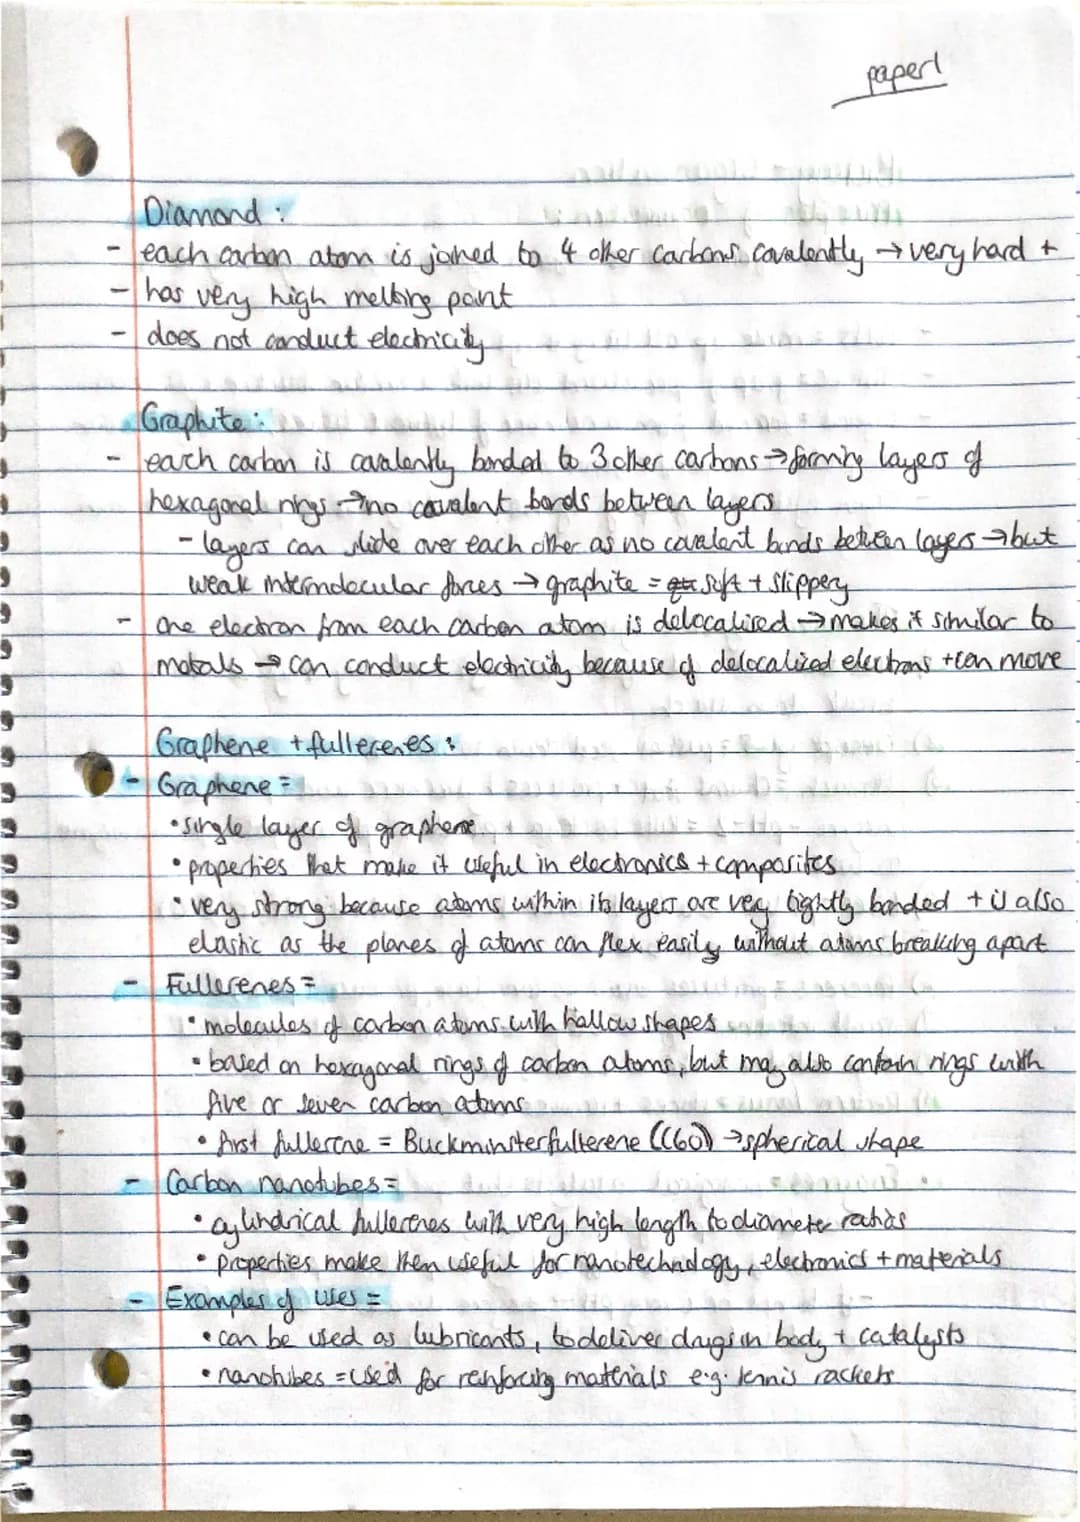 paper 1
Diamond :
- each carbon atom is joined to 4 other carbons covalently → very hard +
- has very high melting point
- does not conduct electricity
Graphite :
- each carbon is covalently bonded to 3 other carbons → forming layers of
hexagonal rings → no covalent bonds between layers
- layers can slide over each other as no covalent bonds between layers → but
weak intermolecular forces → graphite = soft + slippery
- one electron from each carbon atom is delocalised → makes it similar to
metals → can conduct electricity because of delocalized electrons + can move
Graphene + fullerenes :
- Graphene =
• single layer of graphene
• properties that make it useful in electronics + composites
• very strong because atoms within its layers are very tightly bonded + is also
elastic as the planes of atoms can flex easily without atoms breaking apart
- Fullerenes =
• molecules of carbon atoms with hollow shapes
• based on hexagonal rings of carbon atoms, but may also contain rings with
five or seven carbon atoms
• first fullerene = Buckminsterfullerene (C60) → spherical shape
- Carbon nanotubes =
• cylindrical fullerenes with very high length to diameter ratios
• properties make them useful for nanotechnology, electronics + materials
- Examples of uses =
• can be used as lubricants, to deliver drugs in body + catalysts
• nanotubes = used for reinforcing materials e.g. tennis rackets